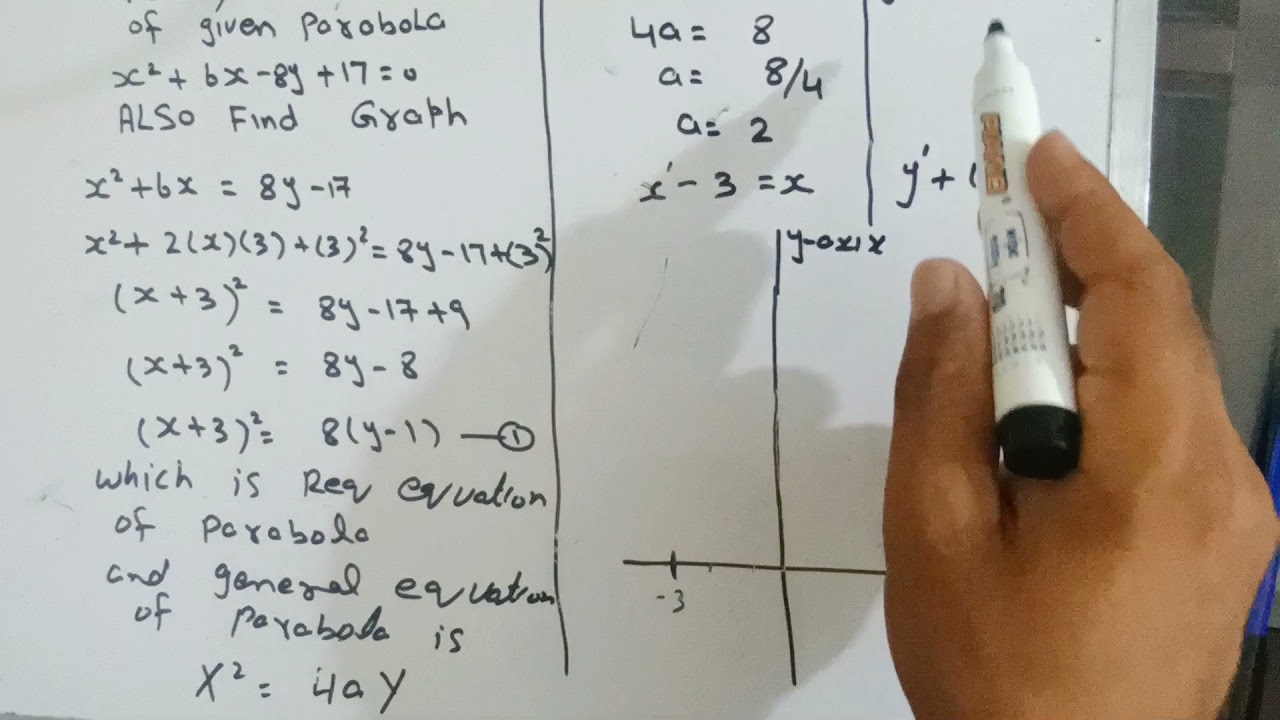 of given Parabola
x² + 6x - 8y + 17 = 0
ALSO Find Graph
x² + 6x = 8y - 17
x² + 2(x)(3) + (3)² = 8y - 17 + (3)²
(x + 3)² = 8y - 17 + 9
(x + 3)² = 8y - 8
(x + 3)² = 8(y - 1) — ①
which is Req equation
of Parabola
and general equation
of Parabola is
X² = 4a Y
4a = 8
a = 8/4
a = 2
x' - 3 = x
y-axix
-3
y' + (